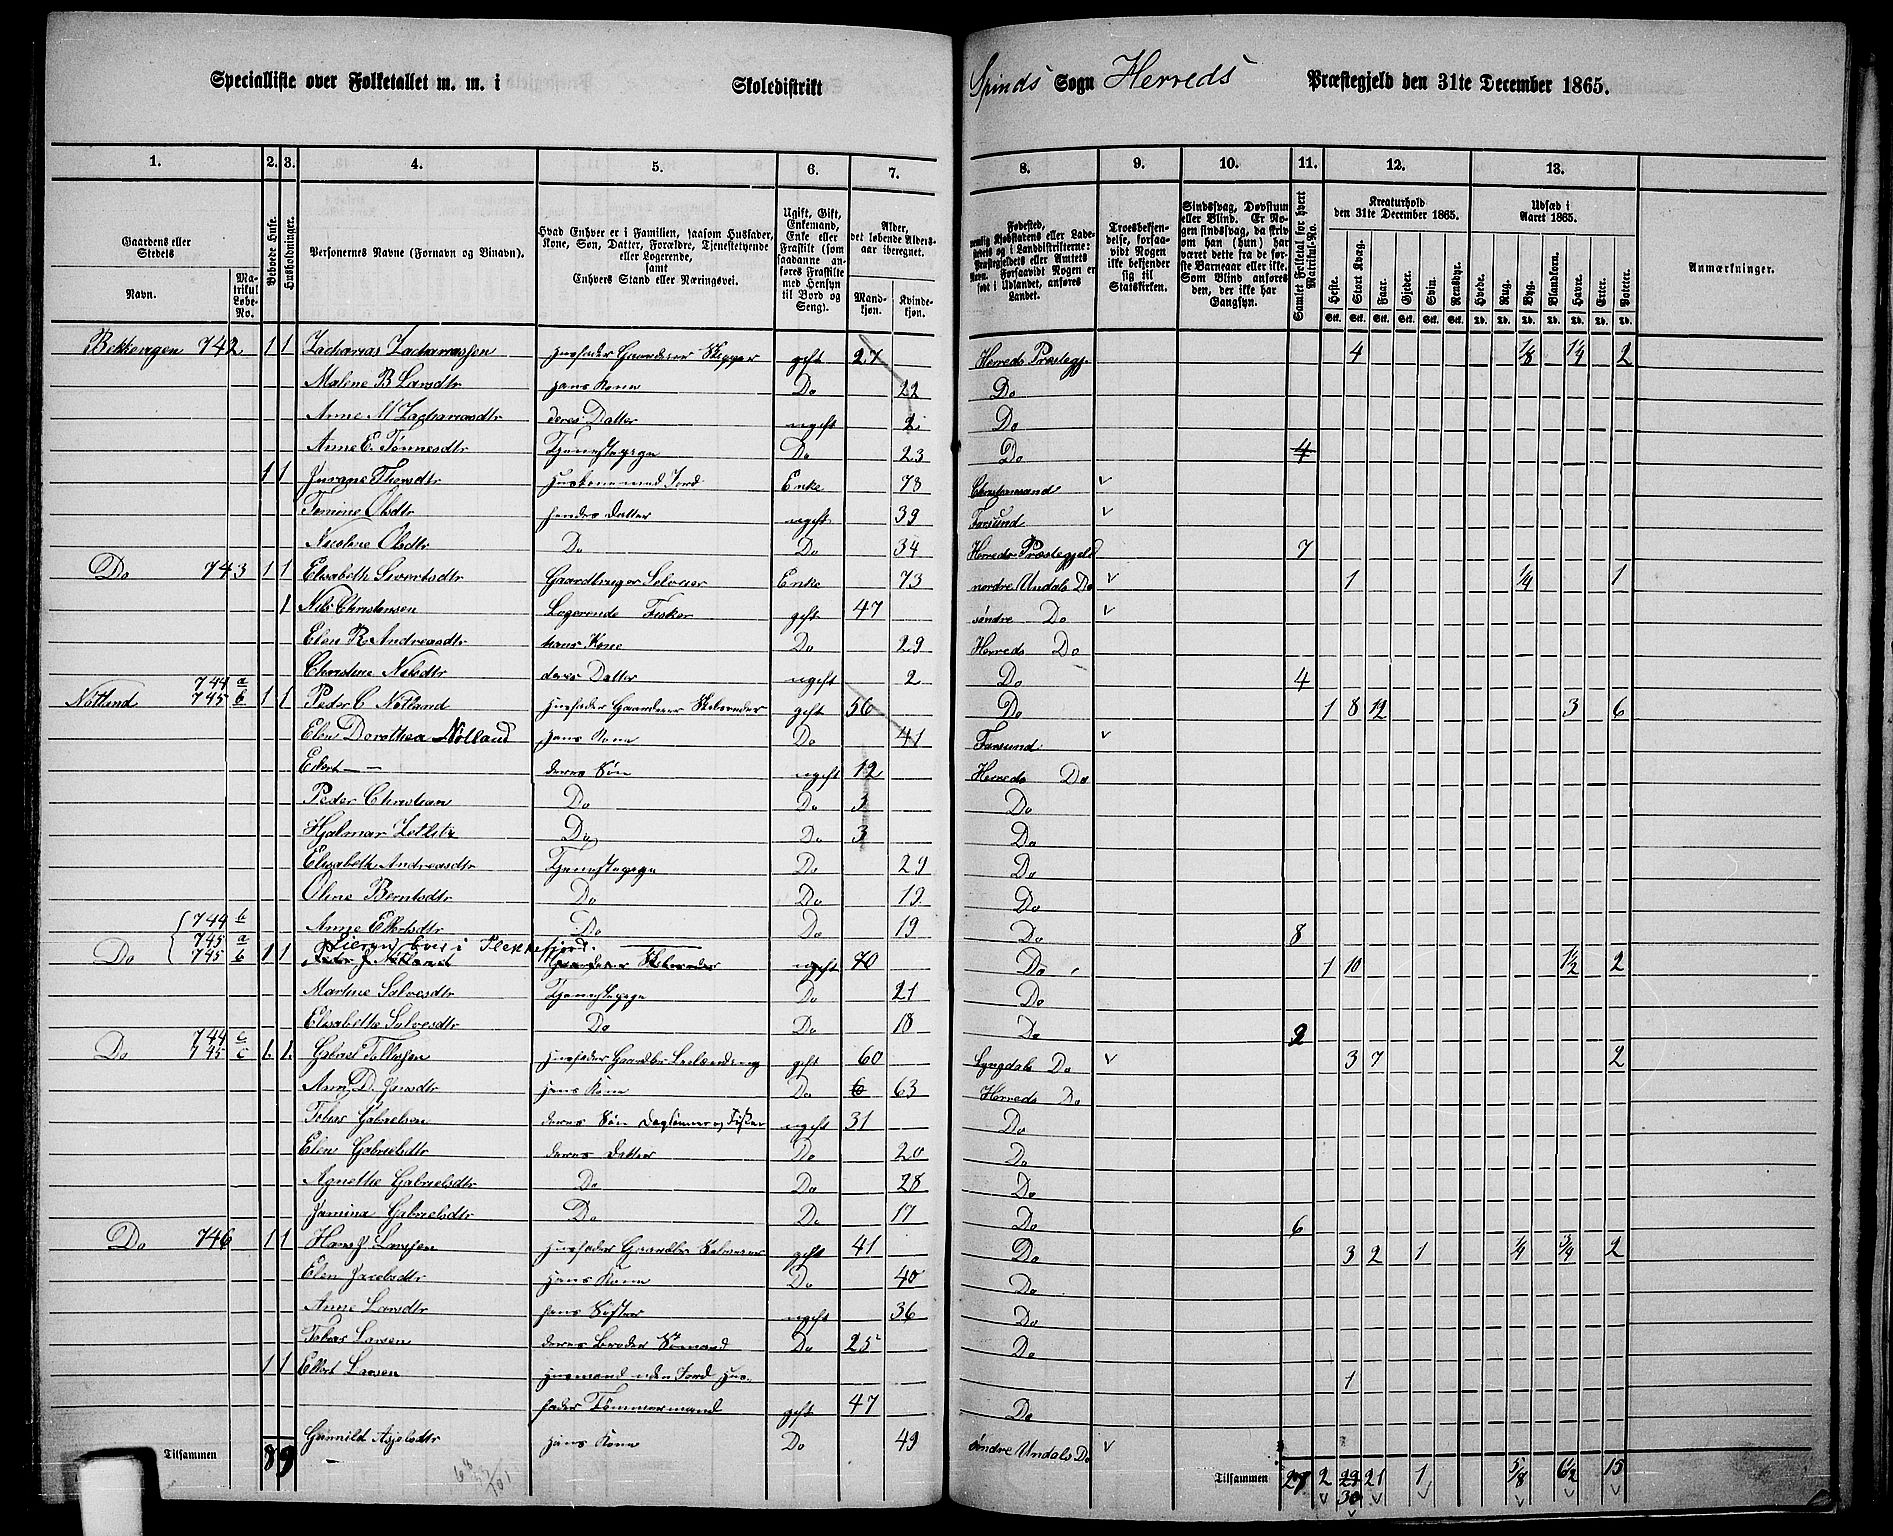 Specialliste over Folketallet m. m. i Skoledistrikt Spinds Sogn Herreds Præstegjeld den 31te December 1865.
1. 2. 3. 4. 5. 6. 7. 8. 9. 10. 11. 12. 13.
Gaardens eller Steds
Navn.
Matrikul Løbe-No.
Beboede Huse.
Husholdninger.
Personernes Navne (Fornavn og Tilnavn).
Hvad Enhver er i Familien, saasom Husfader, Kone, Søn, Datter, Forældre, Tjenestetyende eller Logerende, samt Enhvers Stand eller Næringsvei.
Ugift, Gift, Enkemand, Enke eller Fraskilt (som saadanne anføres Fraskilte med Hensyn til Bord og Seng).
Alder, det løbende Alders-aar iberegnet.
Mandkjøn.
Kvindekjøn.
Troesbekjendelse, forsaavidt Nogen ikke bekjender sig til Statskirken.
Samlet Folketal for hvert Matrikul-No.
Kreaturhold den 31te December 1865.
Heste. Stort Kvæg. Faar. Gjeder. Svin. Rensdyr.
Udsæd i Aaret 1865.
Hvede. Rug. Byg. Blandkorn. Havre. Erter. Poteter.
Anmærkninger.
Bekkengen 742 1 1 Zacharias Zachariassen Husfader Gaardeier Skipper gift 27 Herreds Præstegj. 4 1/8 1 1/4 2
Malene B Larsdtr hans Kone Do 22 Do
Anne M Zachariasdtr deres Datter ugift 2 Do
Anne E. Tønnesdtr Tjenestepige Do 23 Do 4
1 1 Huskone med Jord Enke 78 Christiansand
Tomine Olsdtr hendes Datter ugift 39 Farsund
Nicoline Olsdtr Do Do 34 Herreds Præstegjeld 7
Do 743 1 1 Elisabeth Sivertsdtr Gaardbruger Selveier Enke 73 nordre Undals Do 1 1/4 1
1 Nils Christensen Logerende Fisker gift 47 søndre Do
Elen R. Andreasdtr hans Kone Do 29 Herreds Do
Christine Nilsdtr deres Datter ugift 2 Do 4
744 a
Nøtland 745 b 1 1 Peder C Nøtland Husfader Gaardeier gift 56 Do 1 8 12 3 6
Elen Dorothea Nøtland hans Kone Do 41 Farsund
Eilert — — deres Søn ugift 12 Herreds Do
Peder Christian Do Do 3 Do
Hjalmar Zetlitz Do Do 3 Do
Elisabeth Andreasdtr Tjenestepige Do 29 Do
Oline Berntsdtr Do Do 19 Do
744 b
Anne Eilertsdtr Do Do 19 Do 8
745 a
boer i Flekkefjord.
Do 745 b 1 1 Peder J Nøtland Gaardeier ugift 70 Do 1 10 1 1/2 2
Martine Salvesdtr Tjenestepige Do 21 Do
Elisabethe Salvesdtr Do Do 18 Do 2
744 c
Do 745 c 1. 1. Gabriel Tollefsen Husfader gift 60 Lyngdals Do 3 7 2
Ann D. hans Kone Do 63 Herreds Do
Tobias Gabrielsen deres Søn Daglønner og Fisker ugift 31 Do
Elen Gabrielsdtr deres Datter Do 20 Do
Agnethe Gabrielsdtr Do Do 28 Do
Jamina Gabrielsdtr Do Do 17 Do 6
Do 746 1 1 Hans J Larsen Husfader gift 41 Do 3 2 1 1/4 3/4 2
Elen Jacobsdtr hans Kone Do 40 Do
Anne Larsdtr hans Søster ugift 36 Do
Tobias Larsen deres Broder Sømand Do 25 Do
1 1 Eilert Larsen Husmand uden Jord Hus- 1
fader Tømmermand gift 47 Do
Gunnild Asjelsdtr hans Kone Do 49 søndre Undals Do
Tilsammen 8 9 Tilsammen 27 2 29 21 1 5/8 6 1/2 15
30